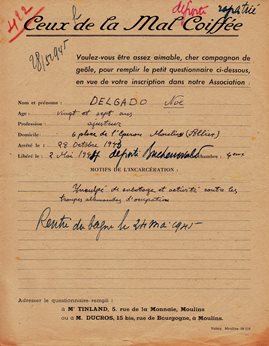 déporté rapatrié
412
Ceux de la Mal Coiffée
28/5/1945
Voulez-vous être assez aimable, cher compagnon de
geôle, pour remplir le petit questionnaire ci-dessous,
en vue de votre inscription dans notre Association :
Nom et prénoms : DELGADO Noë
Age : Vingt et sept ans
Profession : ajusteur
Domicile : 6 place de l' Moulins (Allier)
Arrêté le : 28 Octobre
Libéré le : 2 Mai déporté Buchenwald chambre :
MOTIFS DE L'INCARCÉRATION :
Inculpé de sabotage et activité contre les
troupes allemandes d'occupation
Rentré du bagne le 24 mai 1945
Adresser le questionnaire rempli :
à Mr TINLAND, 5, rue de la Monnaie, Moulins
ou à M. DUCROS, 15 bis, rue de Bourgogne, à Moulins.